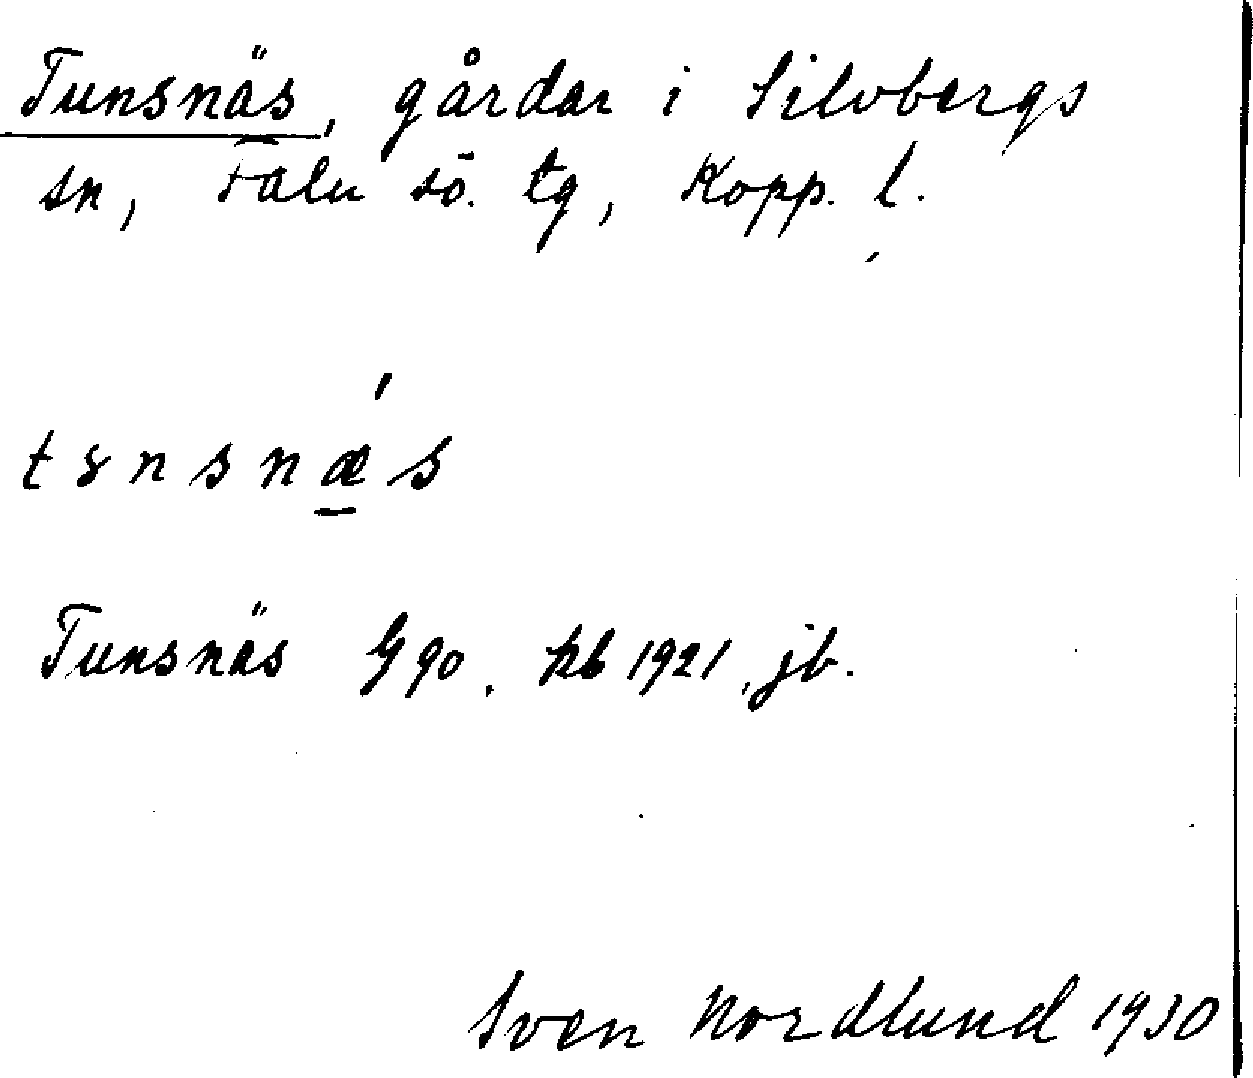 Tunsnäs, gårdar i Silvbergs
sn, Falu sö. tg, Kopp. l.
tȣnsnǽ̲s
Tunsnäs G 90, kb 1921, jb.
Sven Nordlund 1930